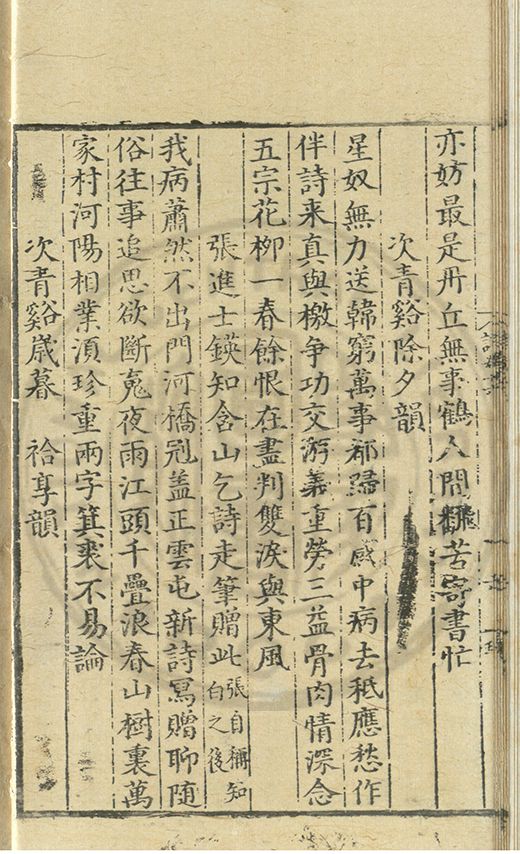 亦妨最是丹丘無事鶴人間辛苦寄書忙
次青谿除夕韻
星奴無力送韓窮萬事都歸百感中病去秪應愁作
伴詩来真與檄争功交游義重勞三益骨肉情深念
五宗花柳一春餘恨在盡判雙淚與東風
張進士鍈知含山乞詩走筆贈此張自稱知白之後
我病蕭然不出門河橋冠盖正雲屯新詩冩贈聊随
俗往事追思欲斷䰟夜雨江頭千疊浪春山樹裏萬
家村河陽相業湏珍重兩字箕裘不易論
次青谿歳暮 祫享韻